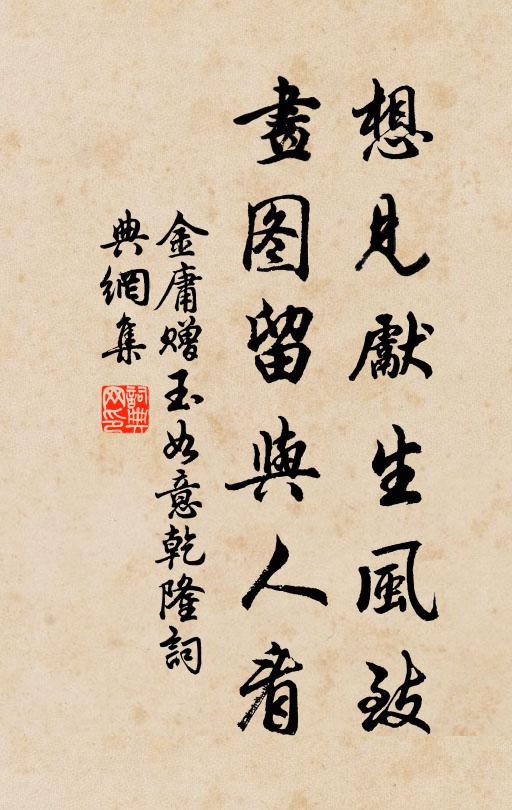 想見獻生風致
畫圖留與人看
金庸贈玉如意乾隆詞
典網集
詞典
网印